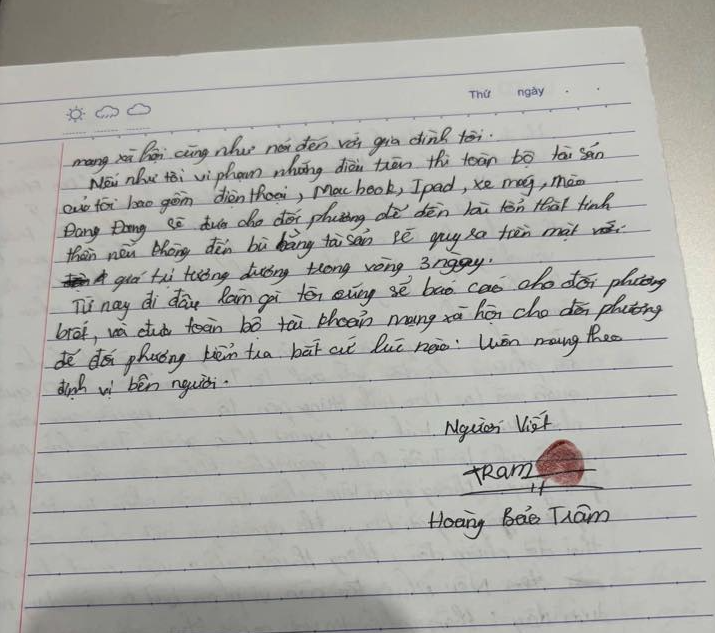 Thứ ngày
mạng xã hội cũng như nói đến với gia đình tôi.
Nếu như tôi vi phạm những điều trên thì toàn bộ tài sản
của tôi bao gồm điện thoại, Macbook, Ipad, xe máy, mèo
Đang Đang sẽ đưa cho đối phương để đền lại tổn thất tinh
thần nếu không đền bù bằng tài sản sẽ quy ra tiền mặt với
giá trị tương đương trong vòng 3 ngày.
Từ nay đi đâu làm gì tôi cũng sẽ báo cáo cho đối phương
biết, và đưa toàn bộ tài khoản mạng xã hội cho đối phương
để đối phương kiểm tra bất cứ lúc nào. Luôn mang theo
định vị bên người.
Người Viết
TRam
Hoàng Bảo Trâm